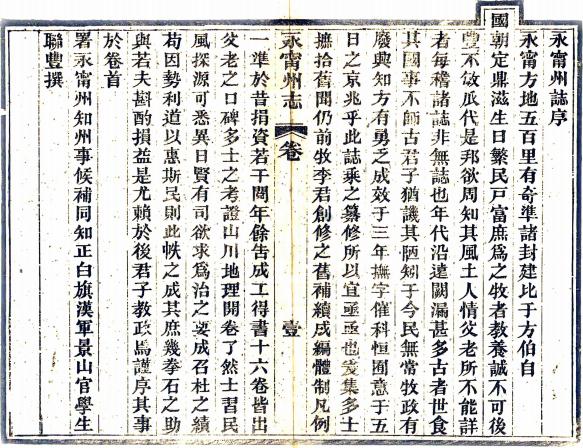 永甯州誌序
永甯方地五百里有奇準諸封建比于方伯自
國朝定鼎滋生日繁民戸富庶爲之牧者教養誠不可後
豐不敏瓜代是邦欲周知其風土人情父老所不能詳
者每稽諸誌非無誌也年代沿遠闕漏甚多古者世食
其國事不師古君子猶譏其陋矧于今民無常牧政有
廢典知方有勇之成效于三年撫字催科恒囿意于五
日之京兆乎此誌乘之纂修所以宜亟亟也爰集多士
摭拾舊聞仍前牧李君創修之舊補續成編體制凡例
永甯州志 卷 壹
一準於昔捐資若干閱年餘告成工得書十六卷皆出
父老之口碑多士之考證山川地理開卷了然士習民
風探源可悉異日賢有司欲求爲治之要成召杜之績
苟因勢利道以惠斯民則此帙之成其庶幾拳石之助
與若夫斟酌損益是尤賴於後君子教政焉謹序其事
於卷首
署永甯州知州事候補同知正白旗漢軍景山官學生
聯豐撰